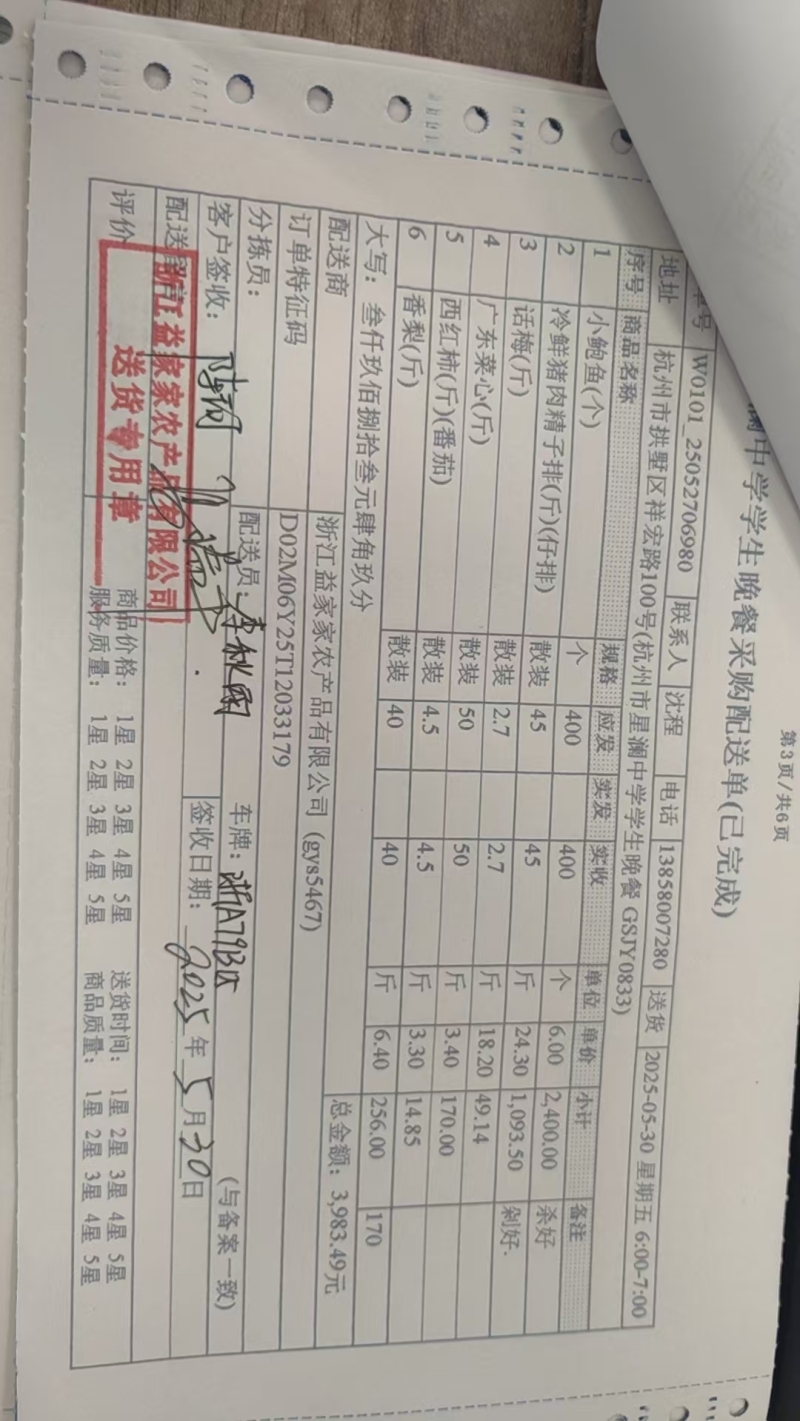 第3页/共6页
中学学生晚餐采购配送单(已完成)
单号 W0101_25052706980 联系人 沈程 电话 13858007280 送货 2025-05-30 星期五 6:00-7:00
地址 杭州市拱墅区祥宏路100号(杭州市星澜中学学生晚餐 GSJY0833)
序号 商品名称 规格 应发 实发 实收 单位 单价 小计 备注
1 小鲍鱼(个) 个 400 400 个 6.00 2,400.00 杀好
2 冷鲜猪肉精子排(斤)(仔排) 散装 45 45 斤 24.30 1,093.50 剁好.
3 话梅(斤) 散装 2.7 2.7 斤 18.20 49.14
4 广东菜心(斤) 散装 50 50 斤 3.40 170.00
5 西红柿(斤)(番茄) 散装 4.5 4.5 斤 3.30 14.85
6 香梨(斤) 散装 40 40 斤 6.40 256.00 170
大写: 叁仟玖佰捌拾叁元肆角玖分 总金额: 3,983.49元
配送商 浙江益家家农产品有限公司 (gys5467)
订单特征码 D02M06Y25T12033179
分拣员: 配送员: 车牌: (与备案一致)
客户签收: 签收日期: 2025年5月30日
配送
评价 商品价格: 1星 2星 3星 4星 5星 送货时间: 1星 2星 3星 4星 5星
服务质量: 1星 2星 3星 4星 5星 商品质量: 1星 2星 3星 4星 5星
浙江益家家农产品有限公司
送货专用章